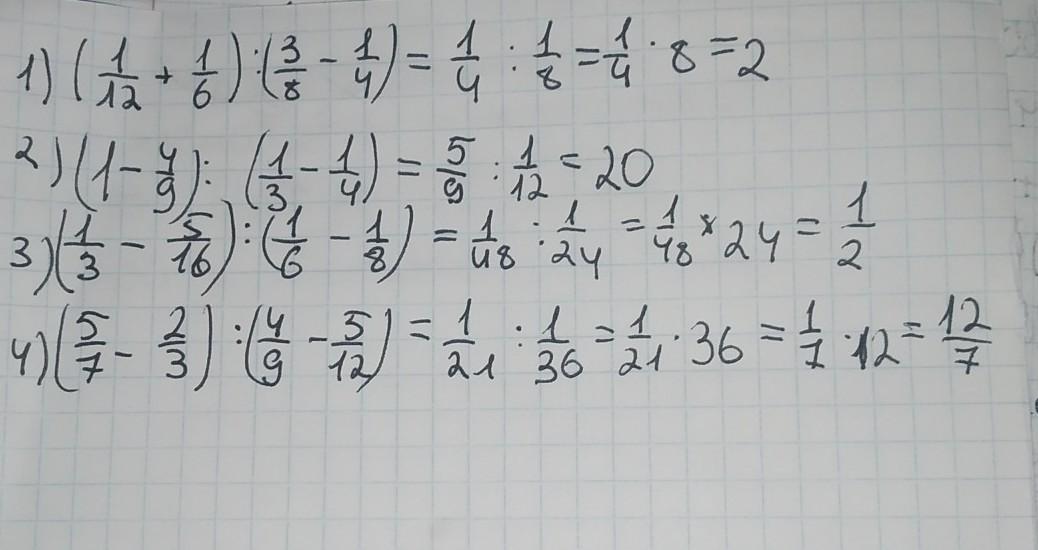 1) (1/12 + 1/6) : (3/8 - 1/4) = 1/4 : 1/8 = 1/4 · 8 = 2
2) (1 - 4/9) : (1/3 - 1/4) = 5/9 : 1/12 = 20
3) (1/3 - 5/16) : (1/6 - 1/8) = 1/48 : 1/24 = 1/48 × 24 = 1/2
4) (5/7 - 2/3) : (4/9 - 5/12) = 1/21 : 1/36 = 1/21 · 36 = 1/7 · 12 = 12/7